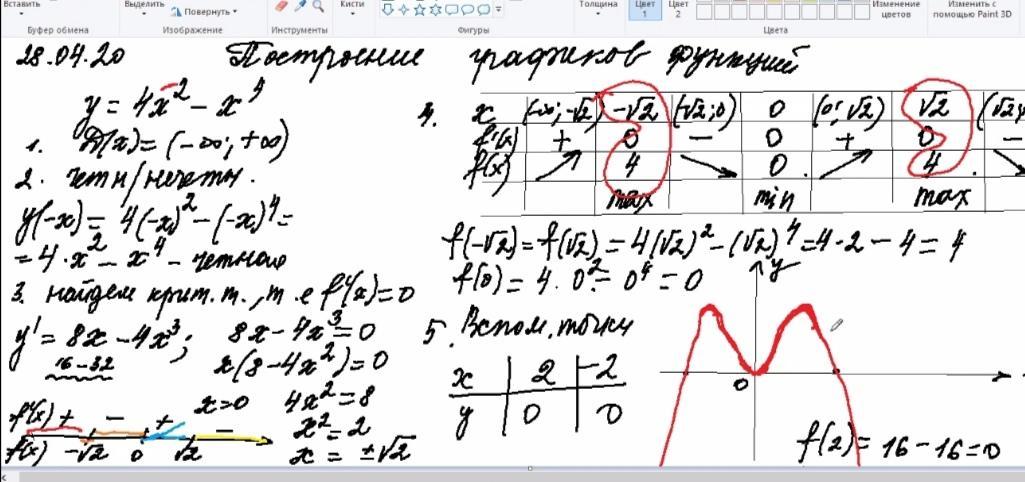 Вставить
Выделить
Повернуть
Кисти
Толщина
Цвет 1
Цвет 2
Изменение цветов
Изменить с помощью Paint 3D
Буфер обмена
Изображение
Инструменты
Фигуры
Цвета
28.04.20 Построение графиков функций
y = 4x² − x⁴
1. D(x) = (−∞; +∞)
2. четн/нечетн.
y(−x) = 4(−x)² − (−x)⁴ =
= 4·x² − x⁴ − четная
3. найдем крит. т., т.е f'(x) = 0
y' = 8x − 4x³; 8x − 4x³ = 0
16 − 32 x(8 − 4x²) = 0
x = 0 4x² = 8
x² = 2
x = ±√2
f'(x) + − + −
f(x) −√2 0 √2
4. x (−∞; −√2) −√2 (−√2; 0) 0 (0; √2) √2 (√2;
f'(x) + 0 − 0 + 0 −
f(x) 4 0 4
max min max
f(−√2) = f(√2) = 4(√2)² − (√2)⁴ = 4·2 − 4 = 4
f(0) = 4·0² − 0⁴ = 0
5. Вспом. точки
x 2 −2
y 0 0
y
0
f(2) = 16 − 16 = 0